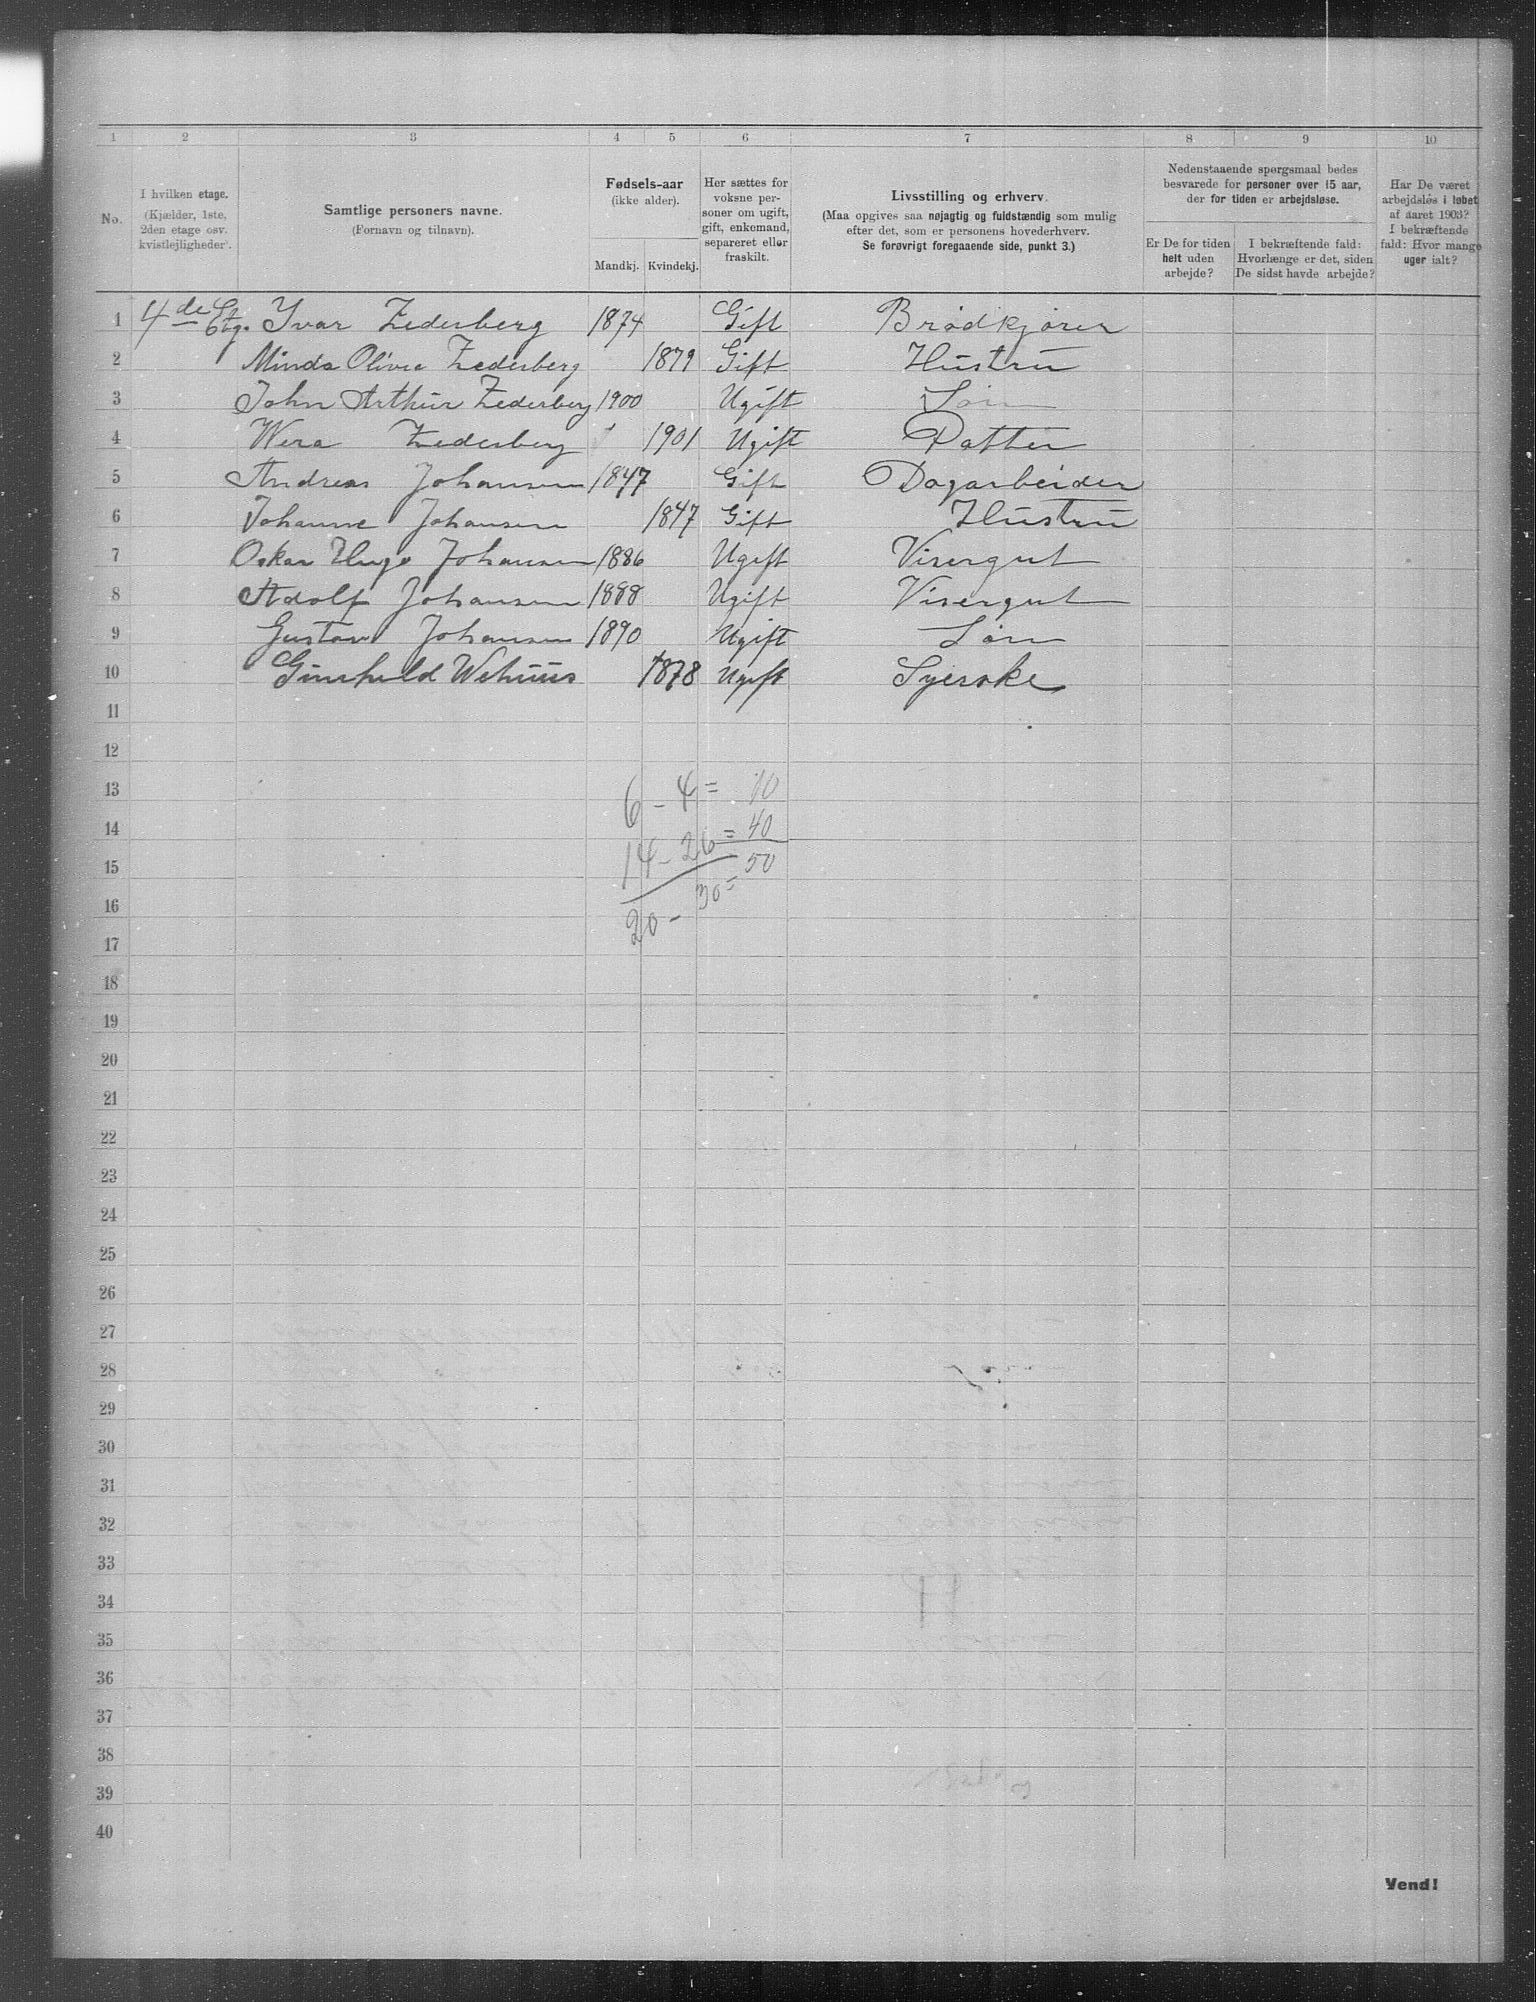 1 2 3 4 5 6 7 8 9 10
No.
I hvilken etage.
(Kjælder, 1ste,
2den etage osv.
kvistlejligheder).
Samtlige personers navne.
(Fornavn og tilnavn).
Fødsels-aar
(ikke alder).
Mandkj. Kvindekj.
Her sættes for
voksne per-
soner om ugift,
gift, enkemand,
separeret eller
fraskilt.
Livsstilling og erhverv.
(Maa opgives saa nøjagtig og fuldstændig som mulig
efter det, som er personens hovederhverv.
Se forøvrigt foregaaende side, punkt 3.)
Nedenstaaende spørgsmaal bedes
besvarede for personer over 15 aar,
der for tiden er arbejdsløse.
Er De for tiden
helt uden
arbejde?
I bekræftende fald:
Hvorlænge er det, siden
De sidst havde arbejde?
Har De været
arbejdsløs i løbet
af aaret 1903?
I bekræftende
fald: Hvor mange
uger ialt?
1 4de Etg. Yvar Zederberg 1874 Gift Brødkjører
2 Minda Olivia Zederberg 1879 Gift Hustru
3 John Arthur Zederberg 1900 Ugift Søn
4 Wera Zederberg 1901 Ugift Datter
5 Andreas Johansen 1847 Gift Dagarbeider
6 Johanne Johansen 1847 Gift Hustru
7 Oskar Hugo Johansen 1886 Ugift Visergut
8 Adolf Johansen 1888 Ugift Visergut
9 Gustav Johansen 1890 Ugift Søn
10 Gunhild Wehuus 1878 Ugift Syerske
11
12
13 6 - 4 = 10
14 14 - 26 = 40
15 20 - 30 = 50
16
17
18
19
20
21
22
23
24
25
26
27
28
29
30
31
32
33
34
35
36
37
38
39
40
Vend!